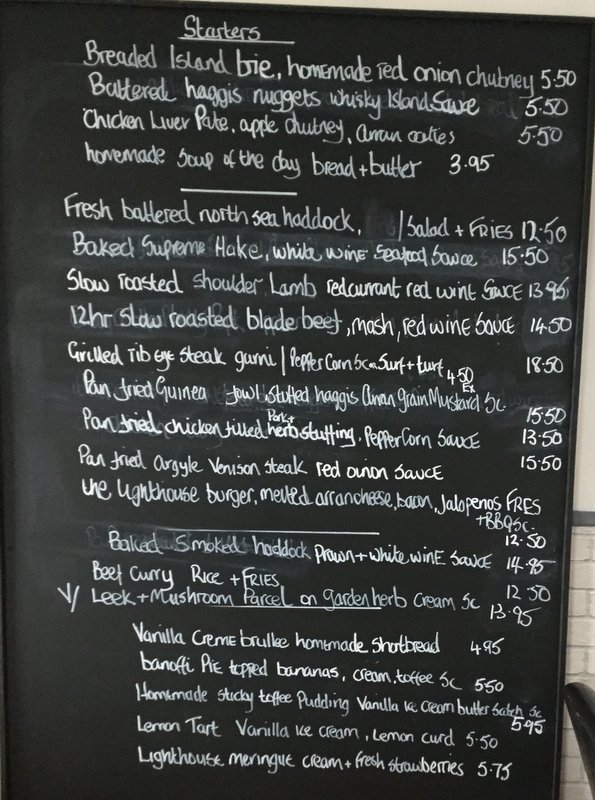 Starters
Breaded Island brie, homemade red onion chutney 5.50
Battered haggis nuggets whisky Island Sauce 5.50
Chicken Liver Pate, apple chutney, Arran oaties 5.50
homemade Soup of the day bread + butter 3.95
Fresh battered north sea haddock, / Salad + FRIES 12.50
Baked Supreme Hake, white wine Seafood Sauce 15.50
Slow roasted shoulder Lamb redcurrant red wine SAUCE 13.95
12hr Slow roasted blade beef, mash, red wine SAUCE 14.50
Grilled rib eye steak garni / PepperCorn Sc or Surf + turf 4.50 Ex 18.50
Pan fried Guinea fowl stuffed haggis Arran Grain Mustard Sc 15.50
Pan fried chicken filled Pork + herb stuffing, PepperCorn Sauce 13.50
Pan fried Argyle Venison steak red onion SAUCE 15.50
the Lighthouse burger, melted arran cheese, bacon, Jalapenos FRES
+ BBQ Sc. 12.50
Baked Smoked haddock prawn + white wine Sauce 14.95
Beef Curry Rice + FRIES 12.50
V/ Leek + Mushroom Parcel on garden herb Cream Sc 13.95
Vanilla Creme brullee homemade Shortbread 4.95
banoffi PIE topped bananas, cream, toffee Sc 5.50
Homemade sticky toffee Pudding Vanilla Ice Cream butter Scotch Sc 5.95
Lemon Tart Vanilla Ice cream, Lemon curd 5.50
Lighthouse meringue cream + fresh strawberries 5.75